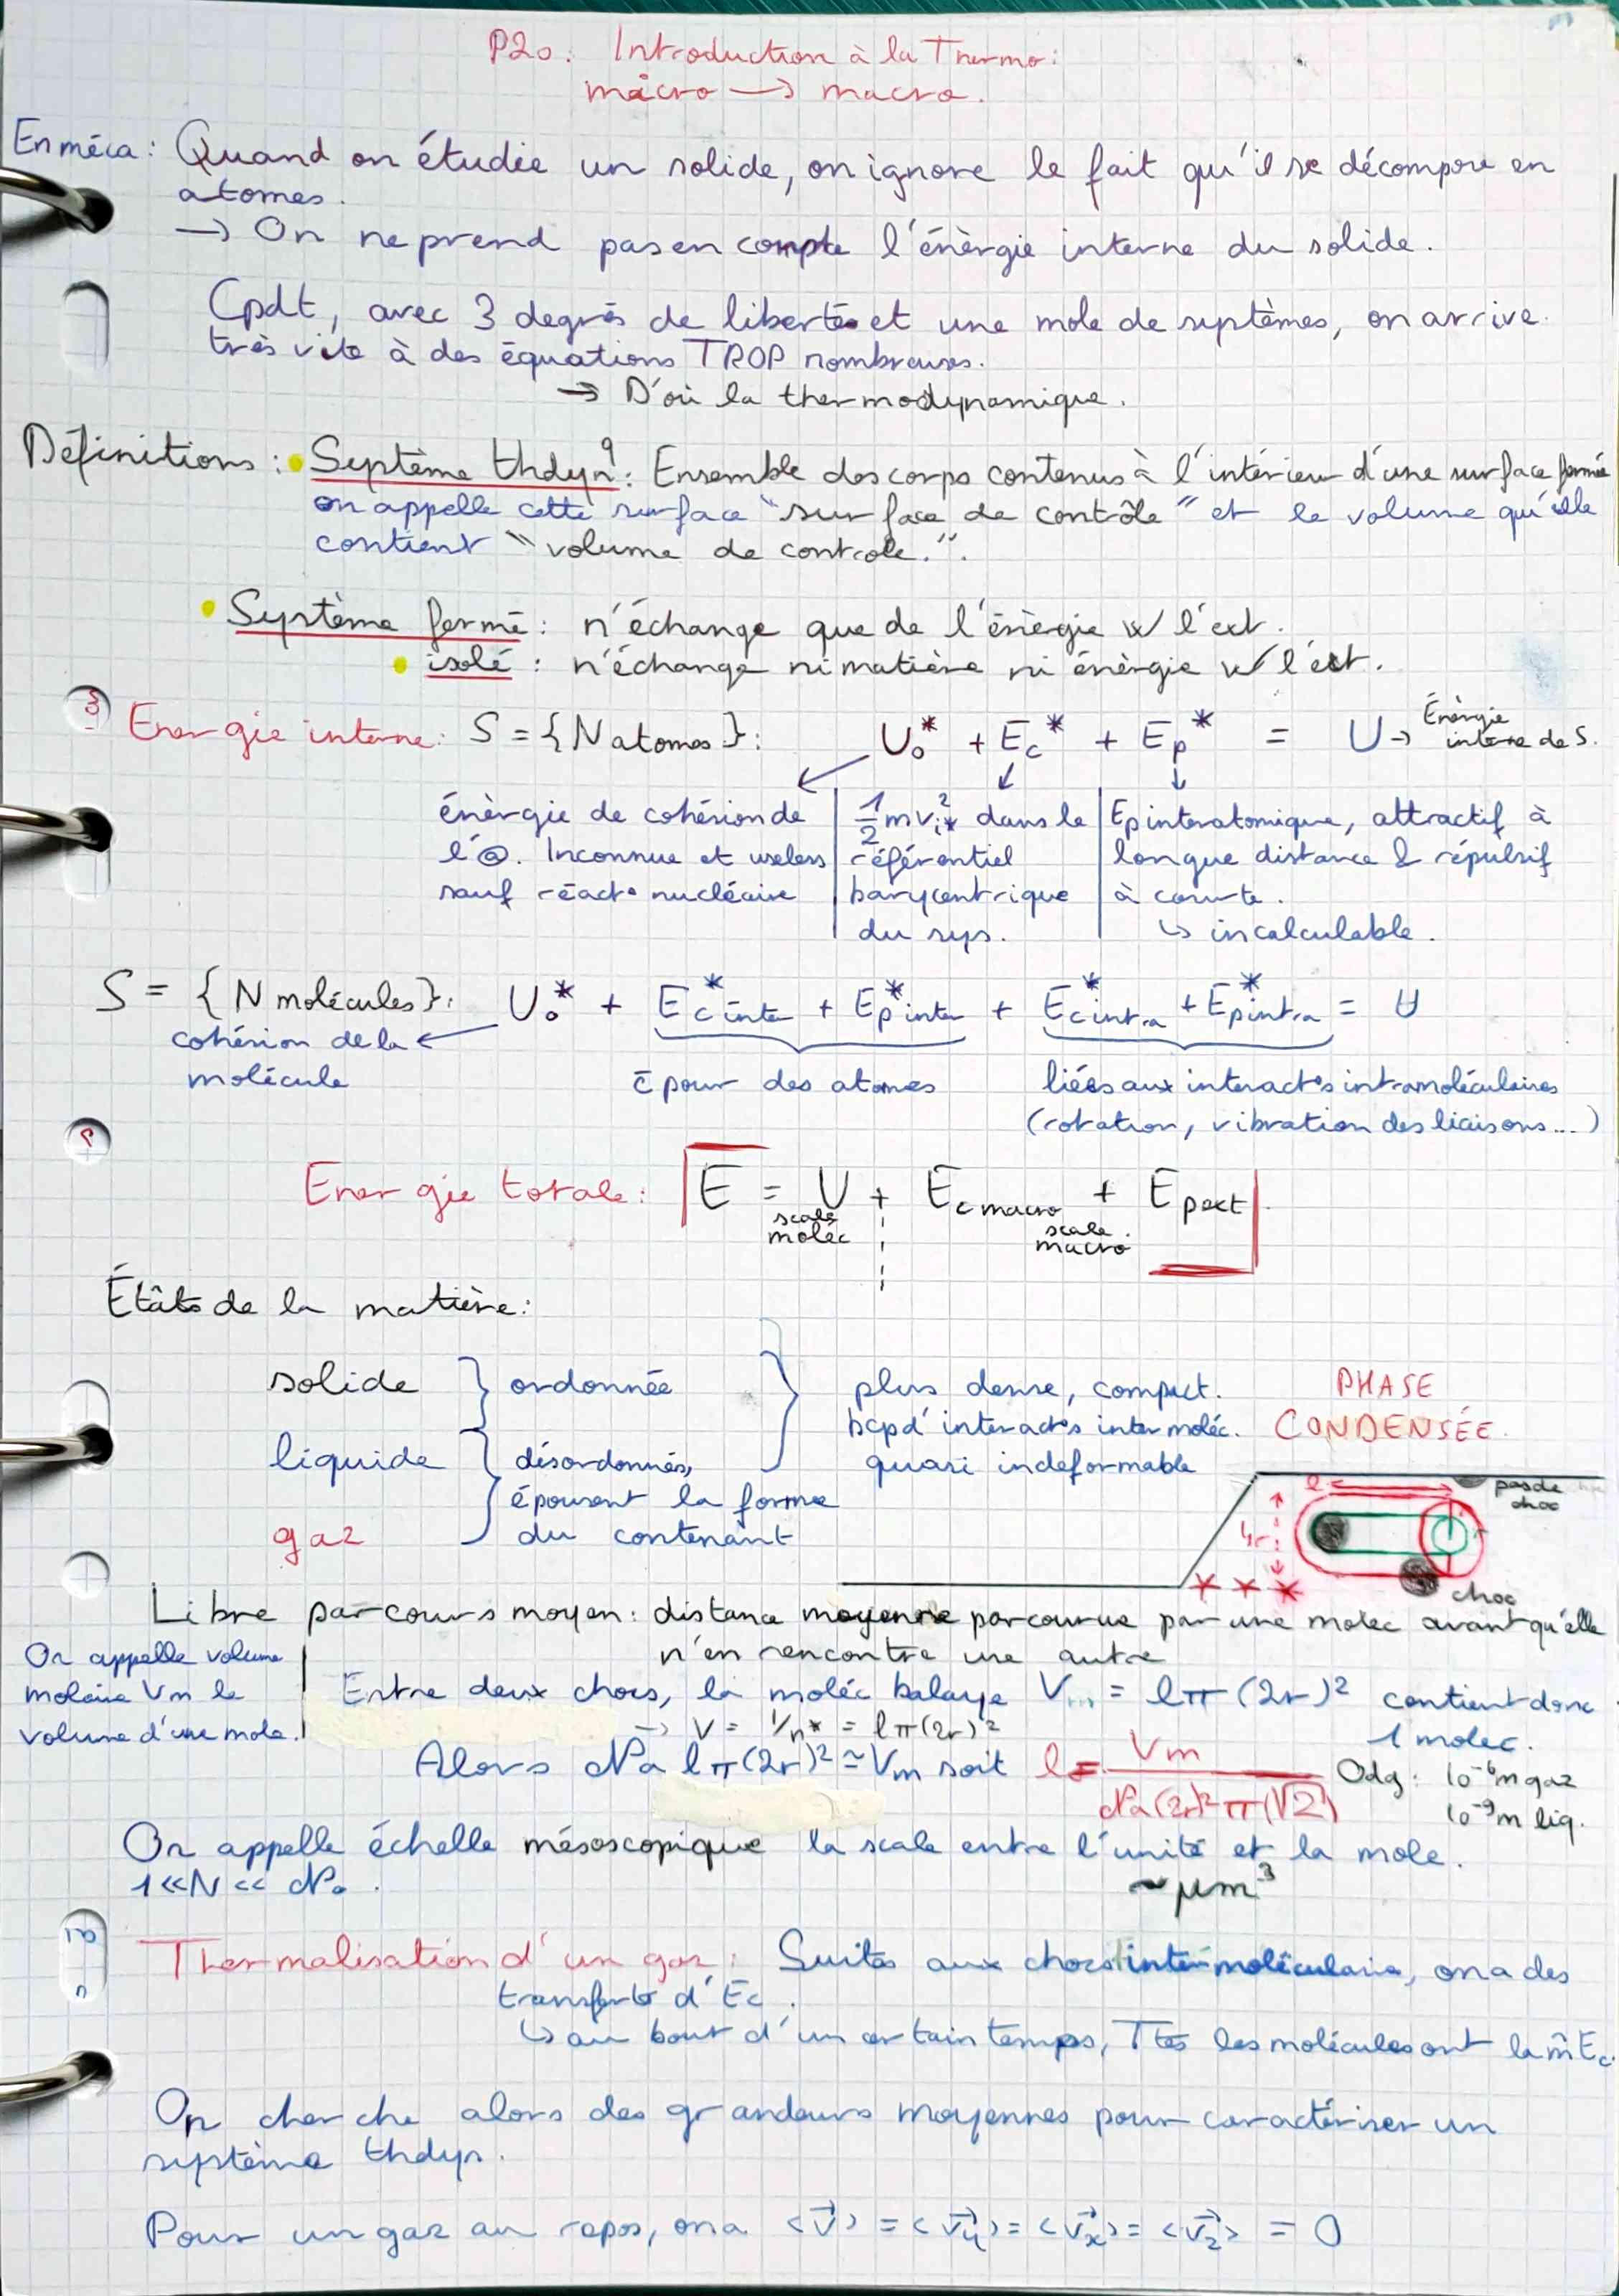 P20. Introduction à la Thermo:
micro → macro.
En méca: Quand on étudie un solide, on ignore le fait qu'il se décompose en
atomes.
→ On ne prend pas en compte l'énèrgie interne du solide.
Cpdt, avec 3 degrés de libertés et une mole de systèmes, on arrive
très vite à des équations TROP nombreuses.
→ D'où la thermodynamique.
Définitions: • Système thdynq: Ensemble des corps contenus à l'intérieur d'une surface fermée
on appelle cette surface "surface de contrôle" et le volume qu'elle
contient "volume de controle.".
• Système fermé: n'échange que de l'énèrgie w/ l'ext.
• isolé: n'échange ni matière ni énèrgie w/ l'ext.
Energie interne: S = {N atomes}: U₀* + Ec* + Ep* = U → Énèrgie interne de S.
énèrgie de cohésion de | ½mvᵢ*² dans le | Ep interatomique, attractif à
l'@. Inconnue et useless | référentiel | longue distance & répulsif
sauf réact° nucléaire | barycentrique | à courte.
du sys. | ↳ incalculable.
S = {N molécules}: U₀* + Ec inter* + Ep inter* + Ec intra* + Ep intra* = U
cohésion de la ←
molécule
c̄ pour des atomes
liées aux interact°s intramoléculaires
(rotation, vibration des liaisons...)
Energie totale: E = U + Ec macro + Ep ext
scale moléc
scale macro
Étâts de la matière:
solide } ordonnée } plus dense, compact. PHASE
bcp d'interact°s interméoléc. CONDENSÉE.
liquide } désordonnés, quasi indeformable
épousent la forme
gaz du contenant
l pas de choc
4r
choc
Libre parcours moyen: distance moyenne parcourue par une molec avant qu'elle
n'en rencontre une autre
On appelle volume
molaire Vm le
volume d'une mole.
Entre deux chocs, la moléc balaye V = lπ(2r)² contient donc
1 molec.
→ V = 1/n* = lπ(2r)²
Alors Na lπ(2r)² ≃ Vm soit l = Vm / Na(2r)²π(√2) Odg: 10⁻⁶m gaz
10⁻⁹m liq.
On appelle échelle mésoscopique la scale entre l'unité et la mole.
1 << N << Na. ~ μm³
Thermalisation d'un gaz: Suites aux chocs intermoléculaire, on a des
transferts d'Ec.
↳ au bout d'un certain temps, Ttes les molécules ont la m̂ Ec.
On cherche alors des grandeurs moyennes pour caractériser un
système thdyn.
Pour un gaz au repos, on a <v⃗> = <v⃗y> = <v⃗x> = <v⃗z> = 0